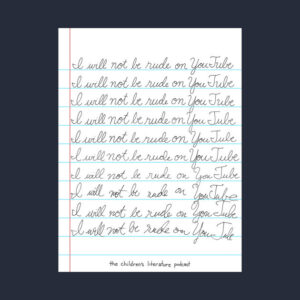 I will not be rude on YouTube
I will not be rude on YouTube
I will not be rude on YouTube
I will not be rude on YouTube
I will not be rude on YouTube
I will not be rude on YouTube
I will not be rude on YouTube
I will not be rude on YouTube
I will not be rude on YouTube
I will not be rude on YouTube
the children's literature podcast